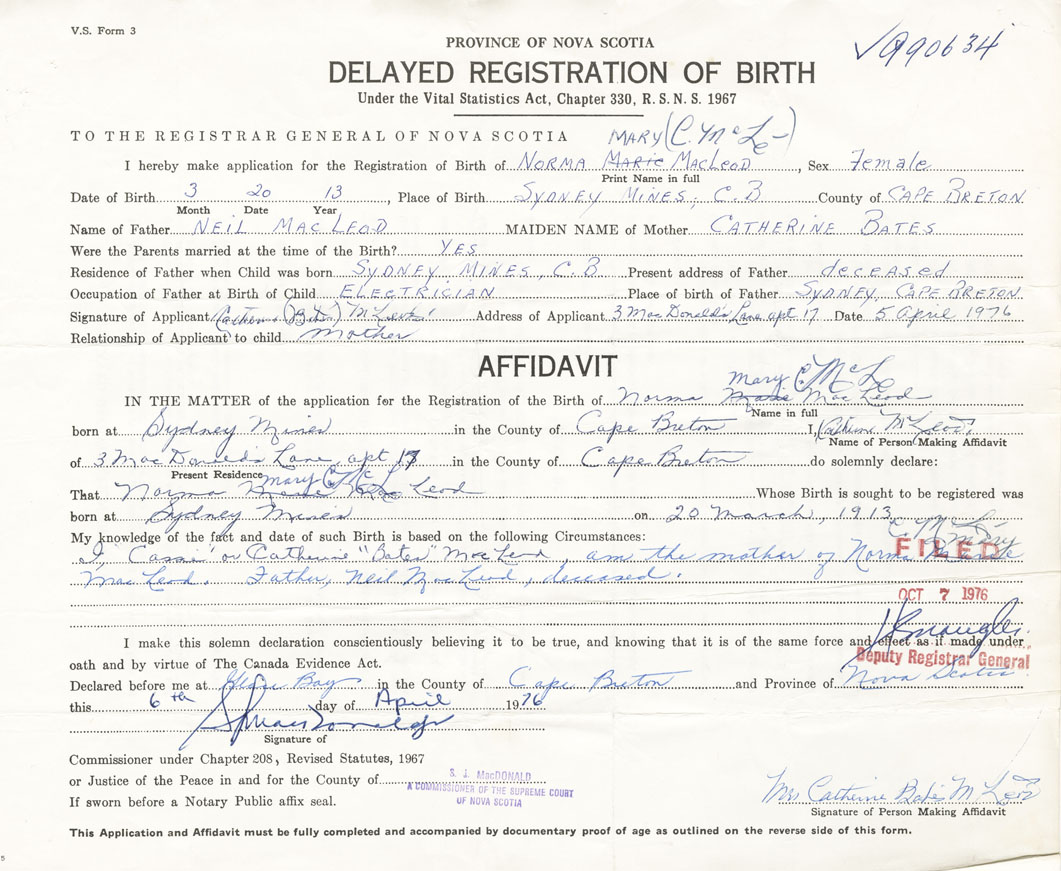 V.S. Form 3
PROVINCE OF NOVA SCOTIA
990634
DELAYED REGISTRATION OF BIRTH
Under the Vital Statistics Act, Chapter 330, R. S. N. S. 1967
TO THE REGISTRAR GENERAL OF NOVA SCOTIA MARY (C. McLe-)
I hereby make application for the Registration of Birth of NORMA MARIE MACLEOD, Sex Female
Print Name in full
Date of Birth 3 20 13, Place of Birth SYDNEY MINES, C.B County of CAPE BRETON
Month Date Year
Name of Father NEIL MACLEOD MAIDEN NAME of Mother CATHERINE BATES
Were the Parents married at the time of the Birth? YES
Residence of Father when Child was born SYDNEY MINES, C.B Present address of Father deceased
Occupation of Father at Birth of Child ELECTRICIAN Place of birth of Father SYDNEY, CAPE BRETON
Signature of Applicant Catherine (Bates) McLeod Address of Applicant 3 MacDonald's Lane apt 17 Date 5 April 1976
Relationship of Applicant to child Mother
AFFIDAVIT
mary C McL
IN THE MATTER of the application for the Registration of the Birth of Norma Marie MacLeod
Name in full
born at Sydney Mines in the County of Cape Breton I, Catherine McLeod,
Name of Person Making Affidavit
of 3 MacDonalds Lane, apt 17 in the County of Cape Breton do solemnly declare:
Present Residence mary C McL
That Norma Marie MacLeod Whose Birth is sought to be registered was
born at Sydney Mines on 20 March, 1913
My knowledge of the fact and date of such Birth is based on the following Circumstances: C McL- mary
I, "Cassie" or Catherine "Bates" MacLeod, am the mother of Norma Marie
FILED
MacLeod. Father, Neil MacLeod, deceased.
OCT 7 1976
I make this solemn declaration conscientiously believing it to be true, and knowing that it is of the same force and effect as if made under
oath and by virtue of The Canada Evidence Act.
Deputy Registrar General
Declared before me at Glace Bay in the County of Cape Breton and Province of Nova Scotia
this 6th day of April 1976
Signature of
Commissioner under Chapter 208, Revised Statutes, 1967
or Justice of the Peace in and for the County of
S. J. MacDONALD
A COMMISSIONER OF THE SUPREME COURT
OF NOVA SCOTIA
If sworn before a Notary Public affix seal.
Mrs Catherine Bates McLeod
Signature of Person Making Affidavit
This Application and Affidavit must be fully completed and accompanied by documentary proof of age as outlined on the reverse side of this form.
5